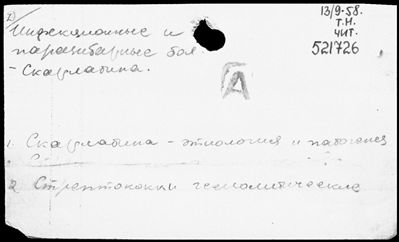 2)
Инфекционные и
паразитарные бол.
- Скарлатина.
13/9-58.
Т.Н.
ЧИТ.
521726
А
1. Скарлатина - этиология и патогенез
2 Стрептококки гемолитические